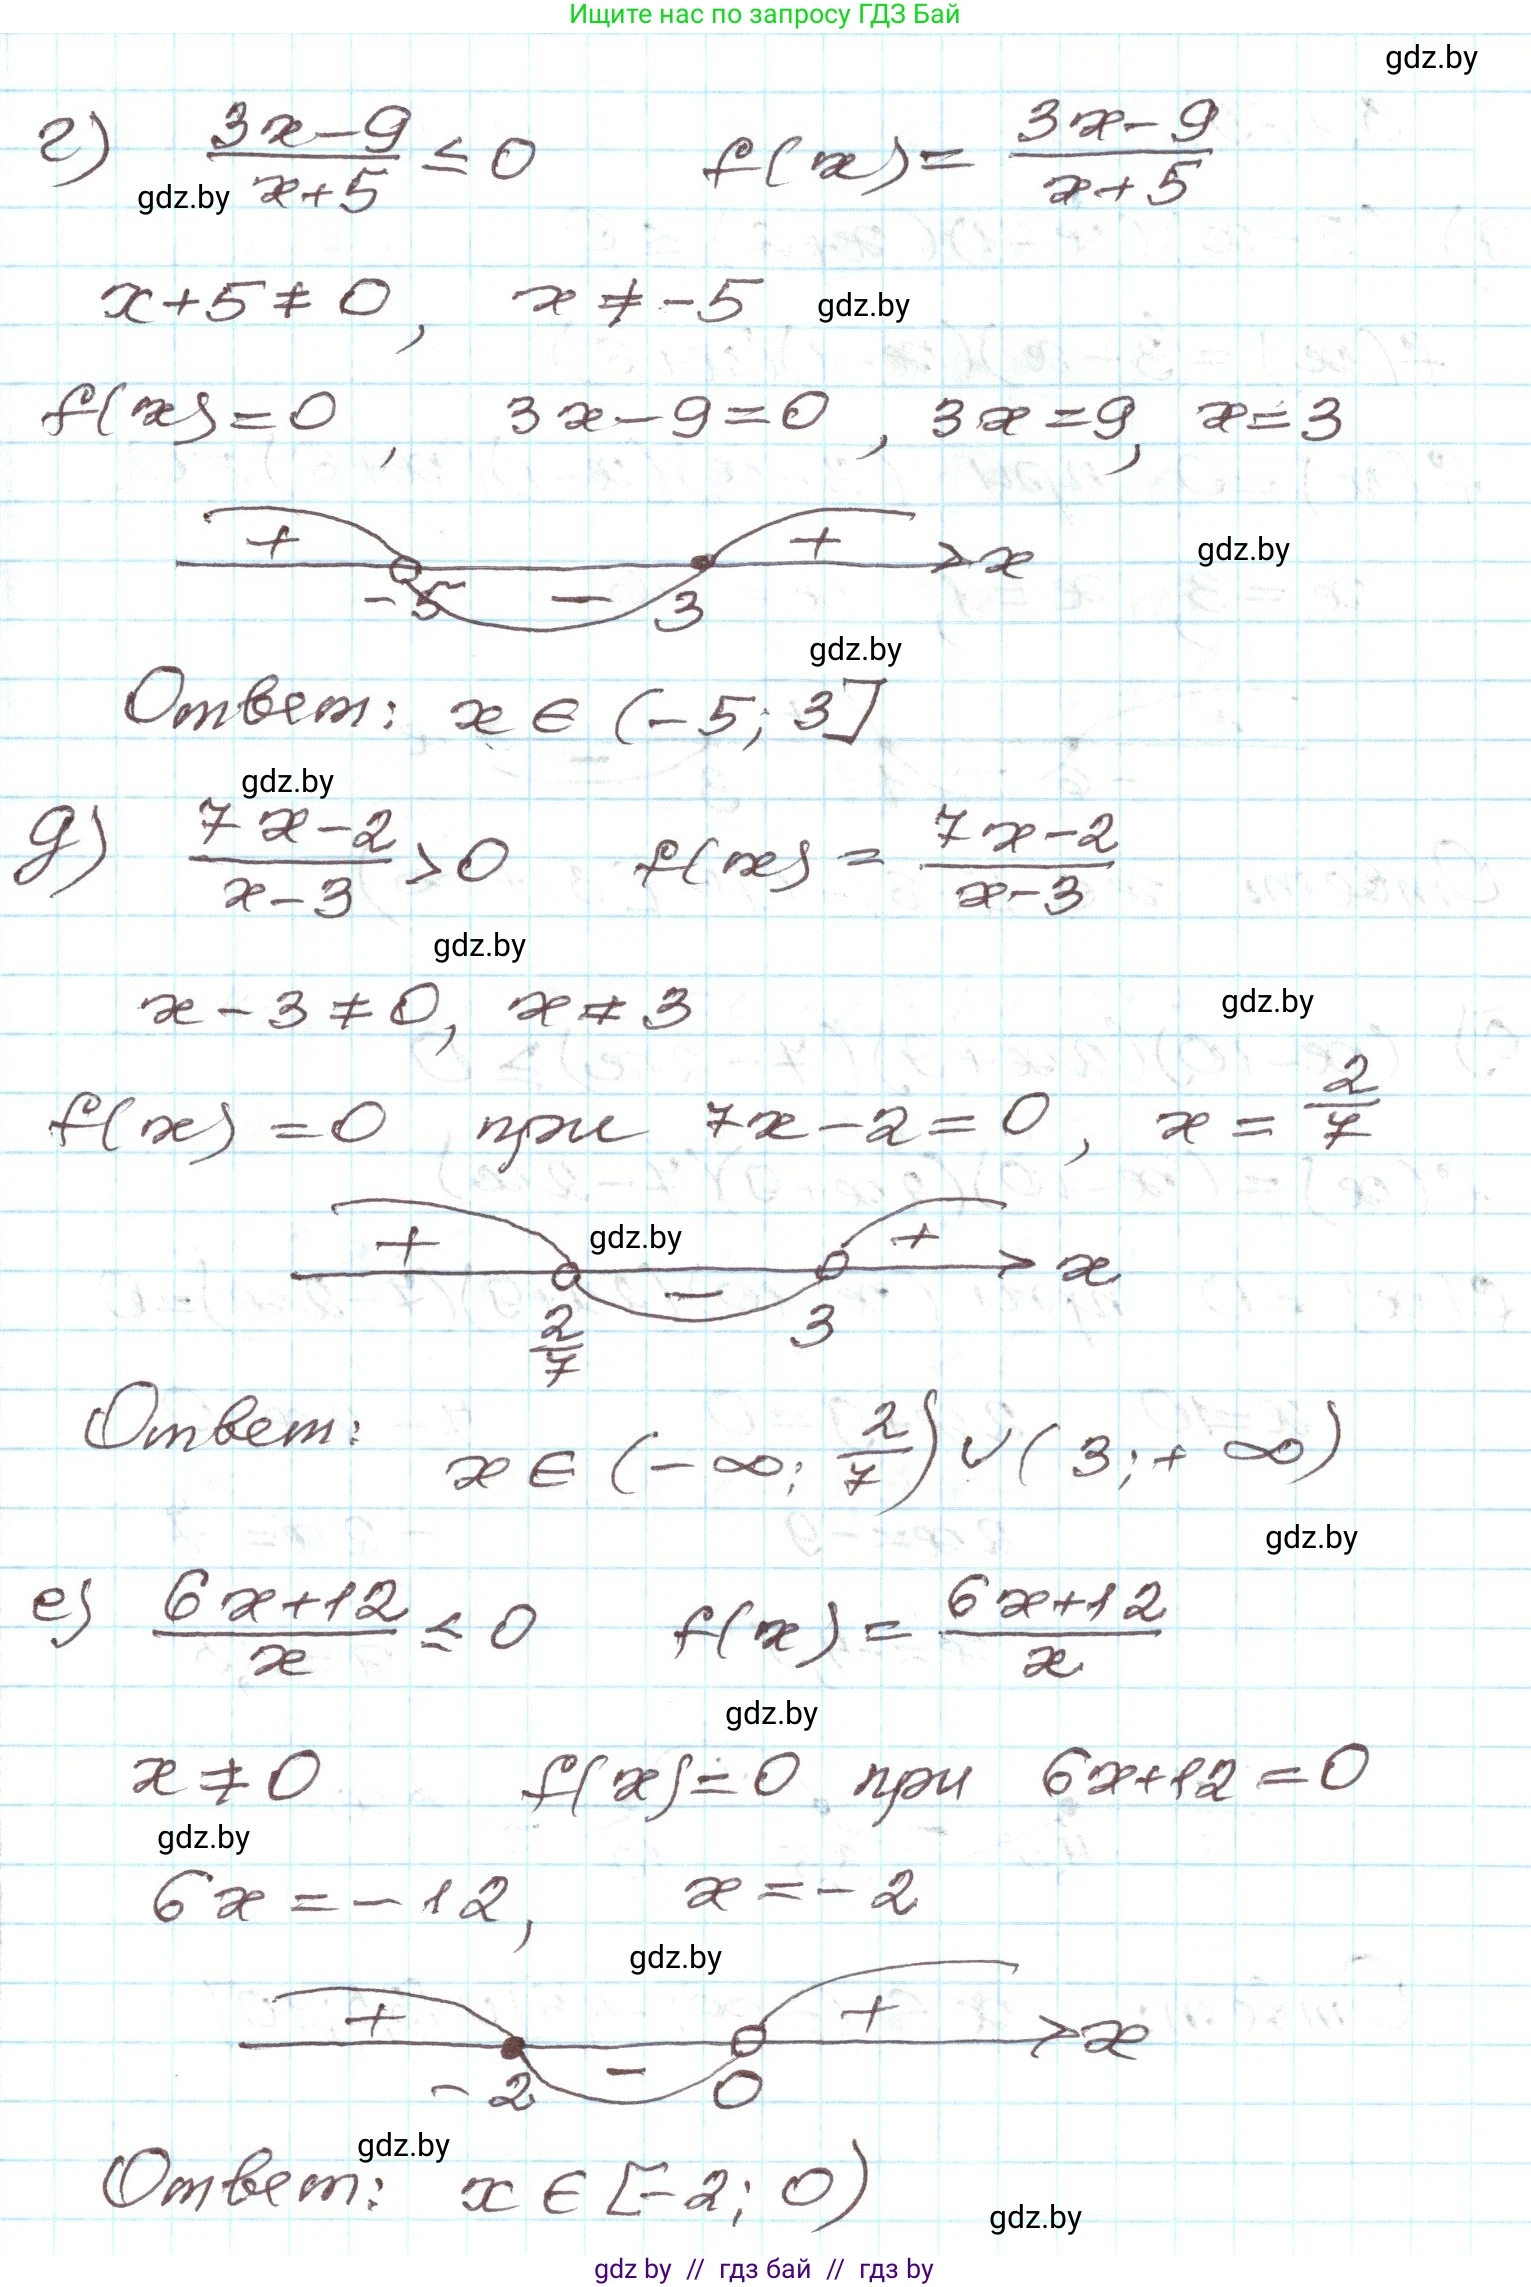 Ищите нас по запросу ГДЗ Бай
gdz.by
г) (3x-9)/(x+5) ≤ 0   f(x) = (3x-9)/(x+5)
gdz.by
x+5≠0, x≠-5 gdz.by
f(x)=0, 3x-9=0, 3x=9, x=3
+ - + x
gdz.by
-5 3
gdz.by
Ответ: x∈(-5; 3]
gdz.by
д) (7x-2)/(x-3) > 0   f(x) = (7x-2)/(x-3)
gdz.by
x-3≠0, x≠3
gdz.by
f(x)=0 при 7x-2=0, x=2/7
+ - + x
gdz.by
2/7 3
Ответ: x∈(-∞; 2/7)∪(3;+∞)
gdz.by
е) (6x+12)/x ≤ 0   f(x) = (6x+12)/x
gdz.by
x≠0 f(x)=0 при 6x+12=0
gdz.by
6x=-12, x=-2
gdz.by
+ - + x
-2 0
gdz.by
Ответ: x∈[-2; 0)
gdz.by
gdz by // гдз бай // гдз by